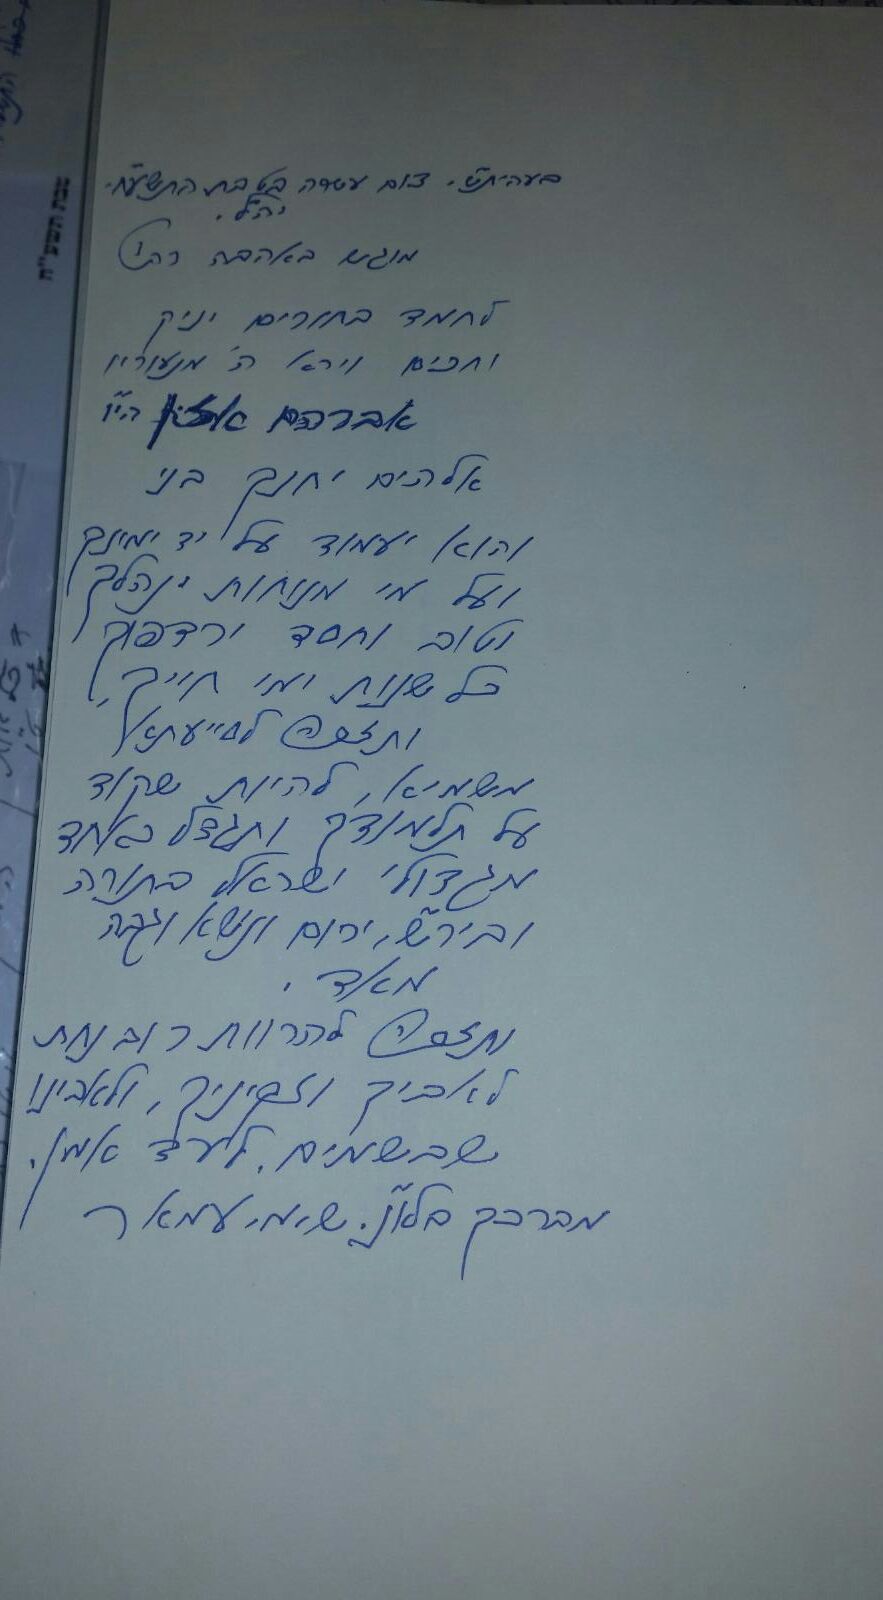 בעהית"ש. צום עשרה בטבת התשע"ח.
יה"ל.
מוגש באהבה רבה
לחמד בחורים יניק
וחכים וירא ה' מנעוריו
אברהם הי"ו
אלהים יחנך בני
והוא יעמוד על יד ימינך
ועל מי מנוחות ינהלך
וטוב וחסד ירדפוך
כל שנות ימי חייך,
ותזכה לסייעתא
משמיא, להיות שקוד
על תלמודך ותגדל כאחד
מגדולי ישראל בתורה
ובירי"ש, ירום ונשא וגבה
מאד.
ותזכה להרוות רוב נחת
לאביך וזקיניך, ולאבינו
שבשמים. לעד אמן.
מברכך בלו"נ. שימי עמאר
שבת תשע"ח